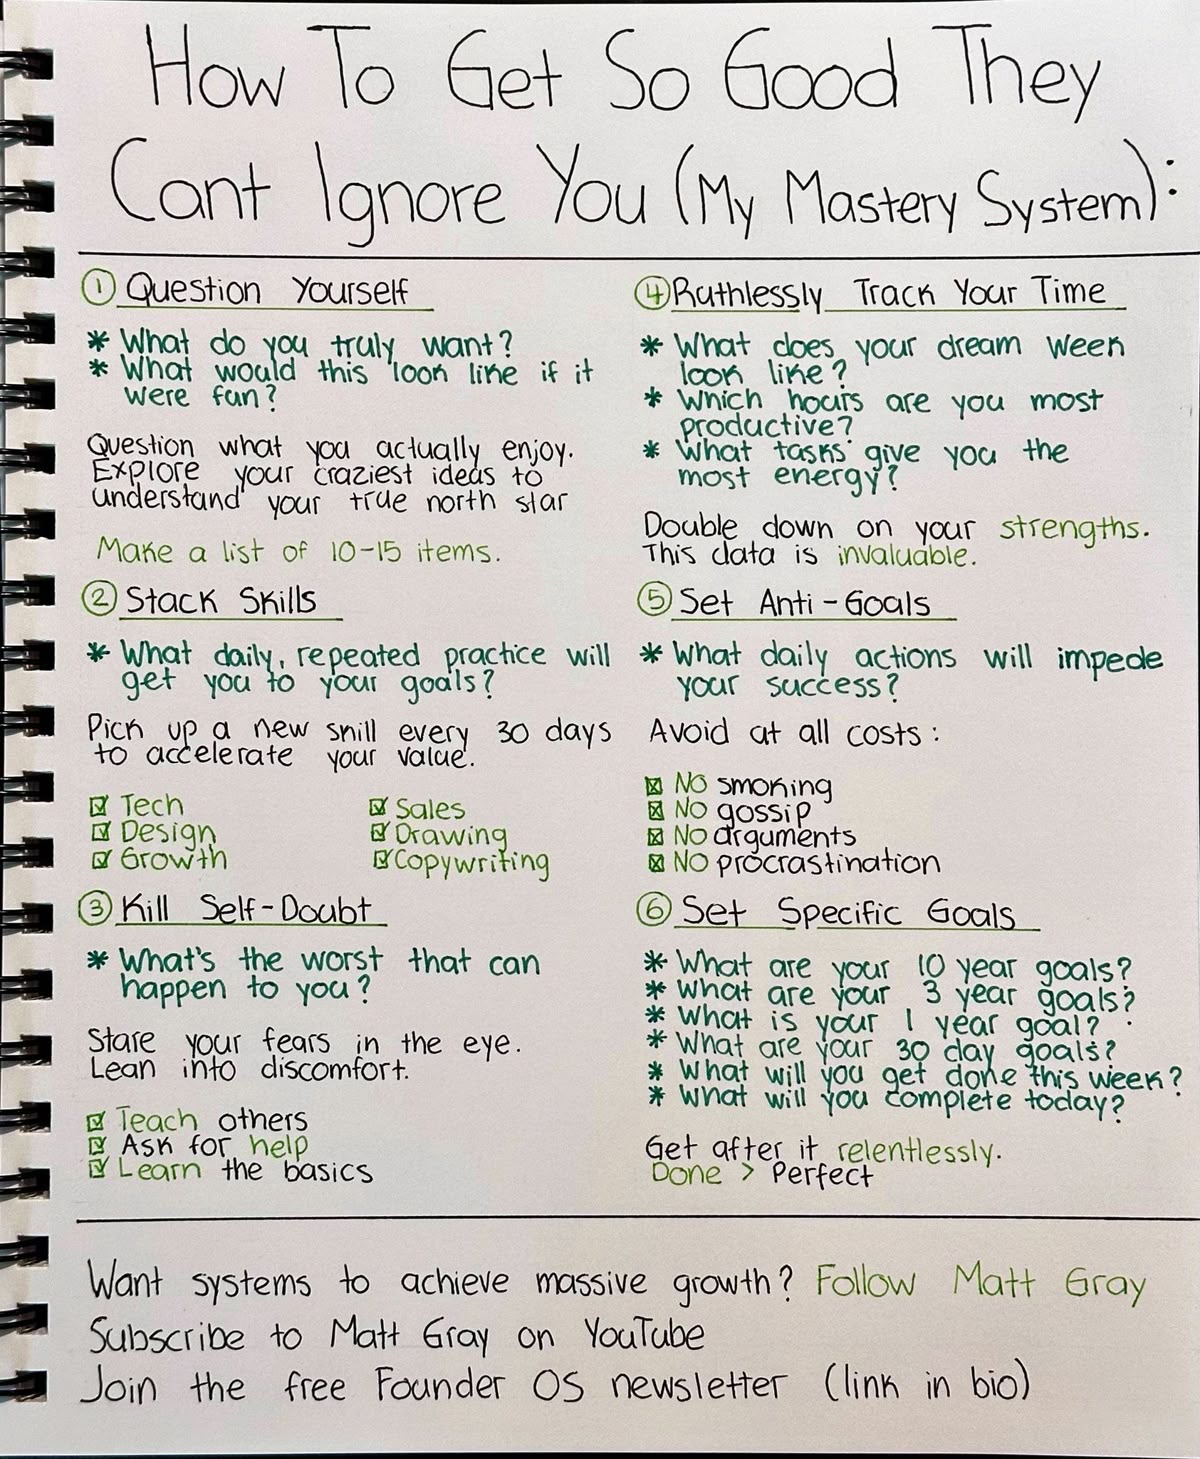 How To Get So Good They
Cant Ignore You (My Mastery System):
① Question Yourself
* What do you truly want?
* What would this look like if it
were fun?
Question what you actually enjoy.
Explore your craziest ideas to
understand your true north star
Make a list of 10-15 items.
② Stack Skills
* What daily, repeated practice will
get you to your goals?
Pick up a new skill every 30 days
to accelerate your value.
☑ Tech
☑ Design
☑ Growth
☑ Sales
☑ Drawing
☑ Copywriting
③ Kill Self-Doubt
* What's the worst that can
happen to you?
Stare your fears in the eye.
Lean into discomfort.
☑ Teach others
☑ Ask for help
☑ Learn the basics
④ Ruthlessly Track Your Time
* What does your dream week
look like?
* Which hours are you most
productive?
* What tasks give you the
most energy?
Double down on your strengths.
This data is invaluable.
⑤ Set Anti-Goals
* What daily actions will impede
your success?
Avoid at all costs:
☒ No smoking
☒ No gossip
☒ No arguments
☒ No procrastination
⑥ Set Specific Goals
* What are your 10 year goals?
* What are your 3 year goals?
* What is your 1 year goal?
* What are your 30 day goals?
* What will you get done this week?
* What will you complete today?
Get after it relentlessly.
Done > Perfect
Want systems to achieve massive growth? Follow Matt Gray
Subscribe to Matt Gray on YouTube
Join the free Founder OS newsletter (link in bio)